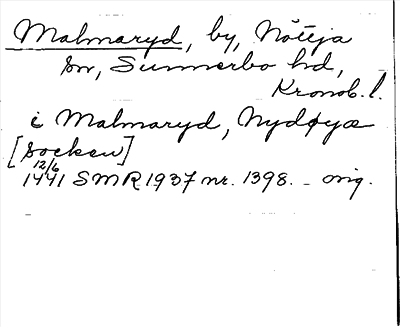 Malmaryd, by, Nöttja
sn, Sunnerbo hd,
Kronob. l.
i Malmaryd, Nydøyæ
[socken]
12/6
1441 SMR 1937 nr. 1398. - orig.